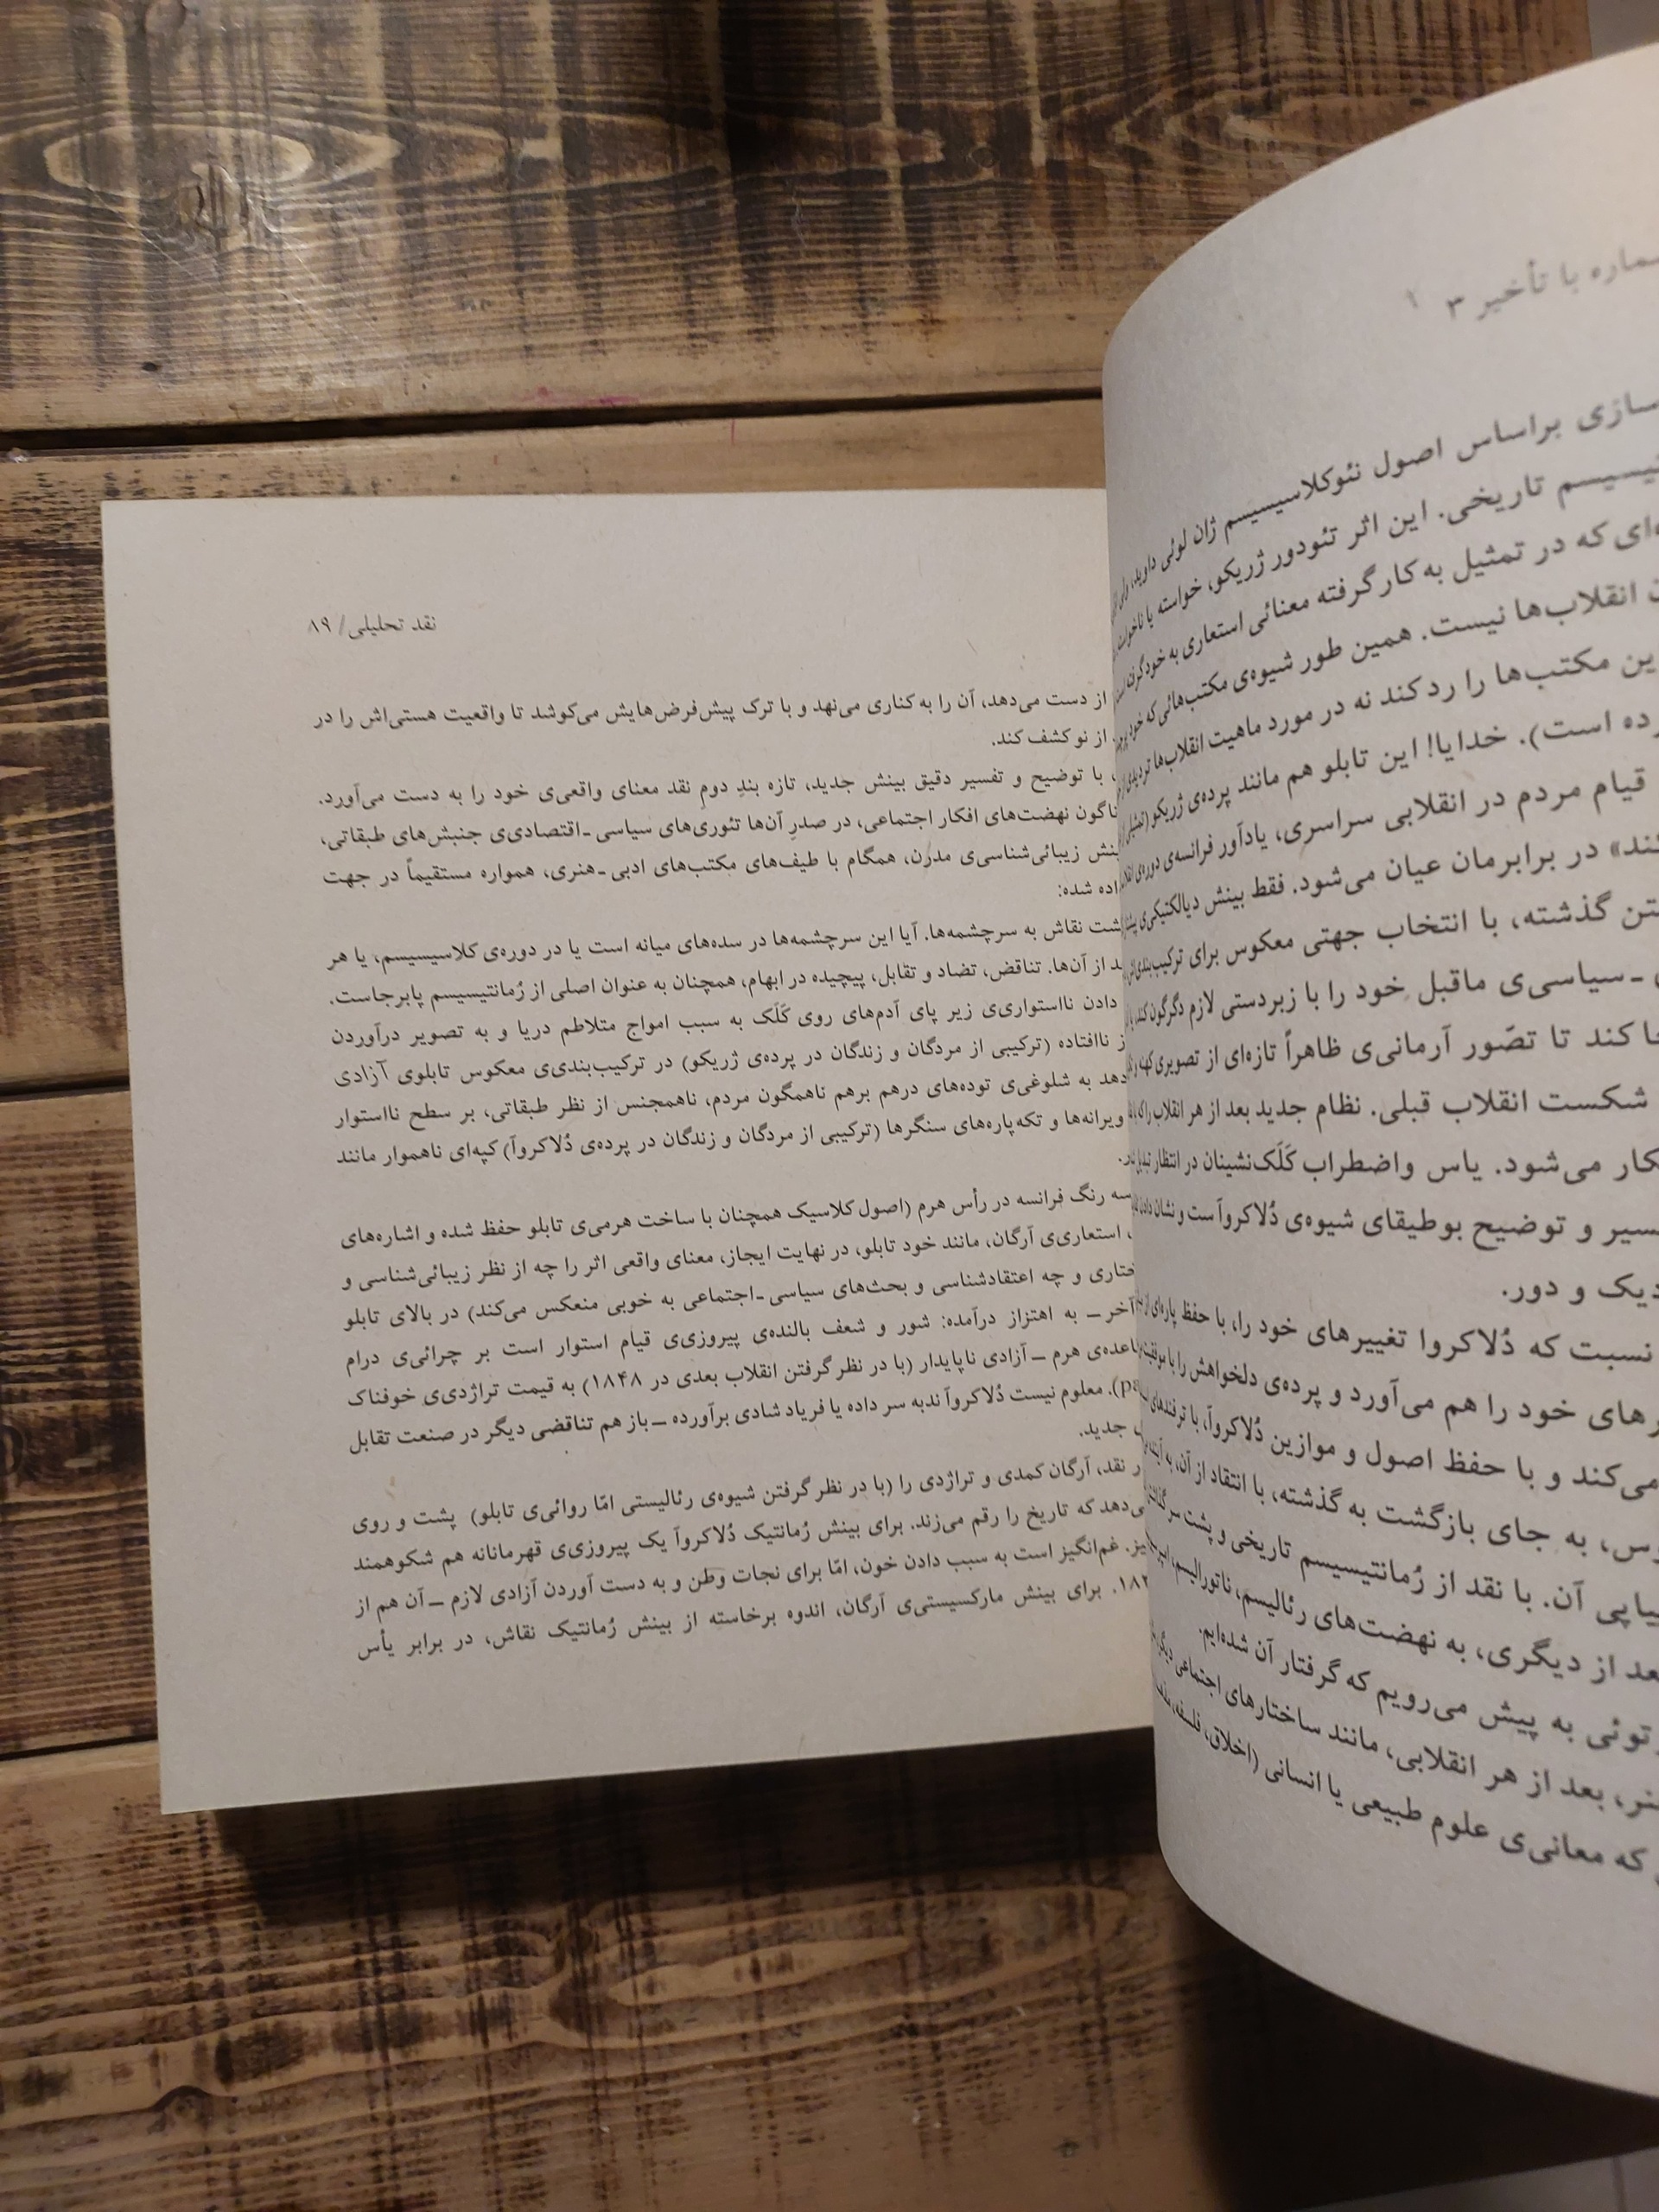 نقد تحلیلی/ ۸۹
از دست می‌دهد، آن را به کناری می‌نهد و با ترک پیش‌فرض‌هایش می‌کوشد تا واقعیت هستی‌اش را در
از نو کشف کند.
با توضیح و تفسیر دقیق بینش جدید، تازه بندِ دومِ نقد معنای واقعی‌ی خود را به دست می‌آورد.
نهضت‌های افکار اجتماعی، در صدرِ آن‌ها تئوری‌های سیاسی ـ اقتصادی‌ی جنبش‌های طبقاتی،
زیبائی‌شناسی‌ی مدرن، همگام با طیف‌های مکتب‌های ادبی ـ هنری، همواره مستقیماً در جهت
شده:
نقاش به سرچشمه‌ها. آیا این سرچشمه‌ها در سده‌های میانه است یا در دوره‌ی کلاسیسیسم، یا هر
از آن‌ها. تناقض، تضاد و تقابل، پیچیده در ابهام، همچنان به عنوان اصلی از رُمانتیسیسم پابرجاست.
دادن نااستواری‌ی زیر پای آدم‌های روی کَلَک به سبب امواج متلاطم دریا و به تصویر درآوردن
نااافتاده (ترکیبی از مردگان و زندگان در پرده‌ی ژریکو) در ترکیب‌بندی‌ی معکوس تابلوی آزادی
به شلوغی‌ی توده‌های درهم برهم ناهمگون مردم، ناهمجنس از نظر طبقاتی، بر سطح نااستوار
ویرانه‌ها و تکه‌پاره‌های سنگرها (ترکیبی از مردگان و زندگان در پرده‌ی دُلاکروآ) کپه‌ای ناهموار مانند
سه رنگ فرانسه در رأس هرم (اصول کلاسیک همچنان با ساخت هرمی‌ی تابلو حفظ شده و اشاره‌های
استعاری‌ی آرگان، مانند خود تابلو، در نهایت ایجاز، معنای واقعی اثر را چه از نظر زیبائی‌شناسی و
و چه اعتقادشناسی و بحث‌های سیاسی ـ اجتماعی به خوبی منعکس می‌کند) در بالای تابلو
آخر ــ به اهتزاز درآمده: شور و شعف بالنده‌ی پیروزی‌ی قیام استوار است بر چرائی‌ی درام
هرم ــ آزادی ناپایدار (با در نظر گرفتن انقلاب بعدی در ۱۸۴۸) به قیمت تراژدی‌ی خوفناک
معلوم نیست دُلاکروآ ندبه سر داده یا فریاد شادی برآورده ــ باز هم تناقضی دیگر در صنعت تقابل
جدید.
نقد، آرگان کمدی و تراژدی را (با در نظر گرفتن شیوه‌ی رئالیستی امّا روائی‌ی تابلو) پشت و روی
که تاریخ را رقم می‌زند. برای بینش رُمانتیک دُلاکروآ یک پیروزی‌ی قهرمانانه هم شکوهمند
غم‌انگیز است به سبب دادن خون، امّا برای نجات وطن و به دست آوردن آزادی لازم ــ آن هم از
برای بینش مارکسیستی‌ی آرگان، اندوه برخاسته از بینش رُمانتیک نقاش، در برابر یأس
با تأخیر ۳
براساس اصول نئوکلاسیسیسم ژان لوئی داوید،
تاریخی. این اثر تئودور ژریکو، خواسته یا ناخواسته
که در تمثیل به کار گرفته معنائی استعاری به خود گرفته
انقلاب‌ها نیست. همین طور شیوه‌ی مکتب‌هائی که خود
مکتب‌ها را رد کند نه در مورد ماهیت انقلاب‌ها تردیدی
است). خدایا! این تابلو هم مانند پرده‌ی ژریکو
قیام مردم در انقلابی سراسری، یادآور فرانسه‌ی دوره‌ی
در برابرمان عیان می‌شود. فقط بینش دیالکتیکی‌ی
گذشته، با انتخاب جهتی معکوس برای ترکیب‌بندی
ـ سیاسی‌ی ماقبل خود را با زبردستی لازم دگرگون کند،
کند تا تصّور آرمانی‌ی ظاهراً تازه‌ای از تصویری کهنه
شکست انقلاب قبلی. نظام جدید بعد از هر انقلاب را که
می‌شود. یاس واضطراب کَلَک‌نشینان در انتظار
و توضیح بوطیقای شیوه‌ی دُلاکروآست و نشان دادن
و دور.
نسبت که دُلاکروا تغییرهای خود را، با حفظ پاره‌ای
خود را هم می‌آورد و پرده‌ی دلخواهش را با موفقیت
می‌کند و با حفظ اصول و موازین دُلاکروآ، با ترفندهای
به جای بازگشت به گذشته، با انتقاد از آن، به
آن. با نقد از رُمانتیسیسم تاریخی و پشت سر
از دیگری، به نهضت‌های رئالیسم، ناتورالیسم،
به پیش می‌رویم که گرفتار آن شده‌ایم.
بعد از هر انقلابی، مانند ساختارهای اجتماعی
که معانی‌ی علوم طبیعی یا انسانی (اخلاق، فلسفه،